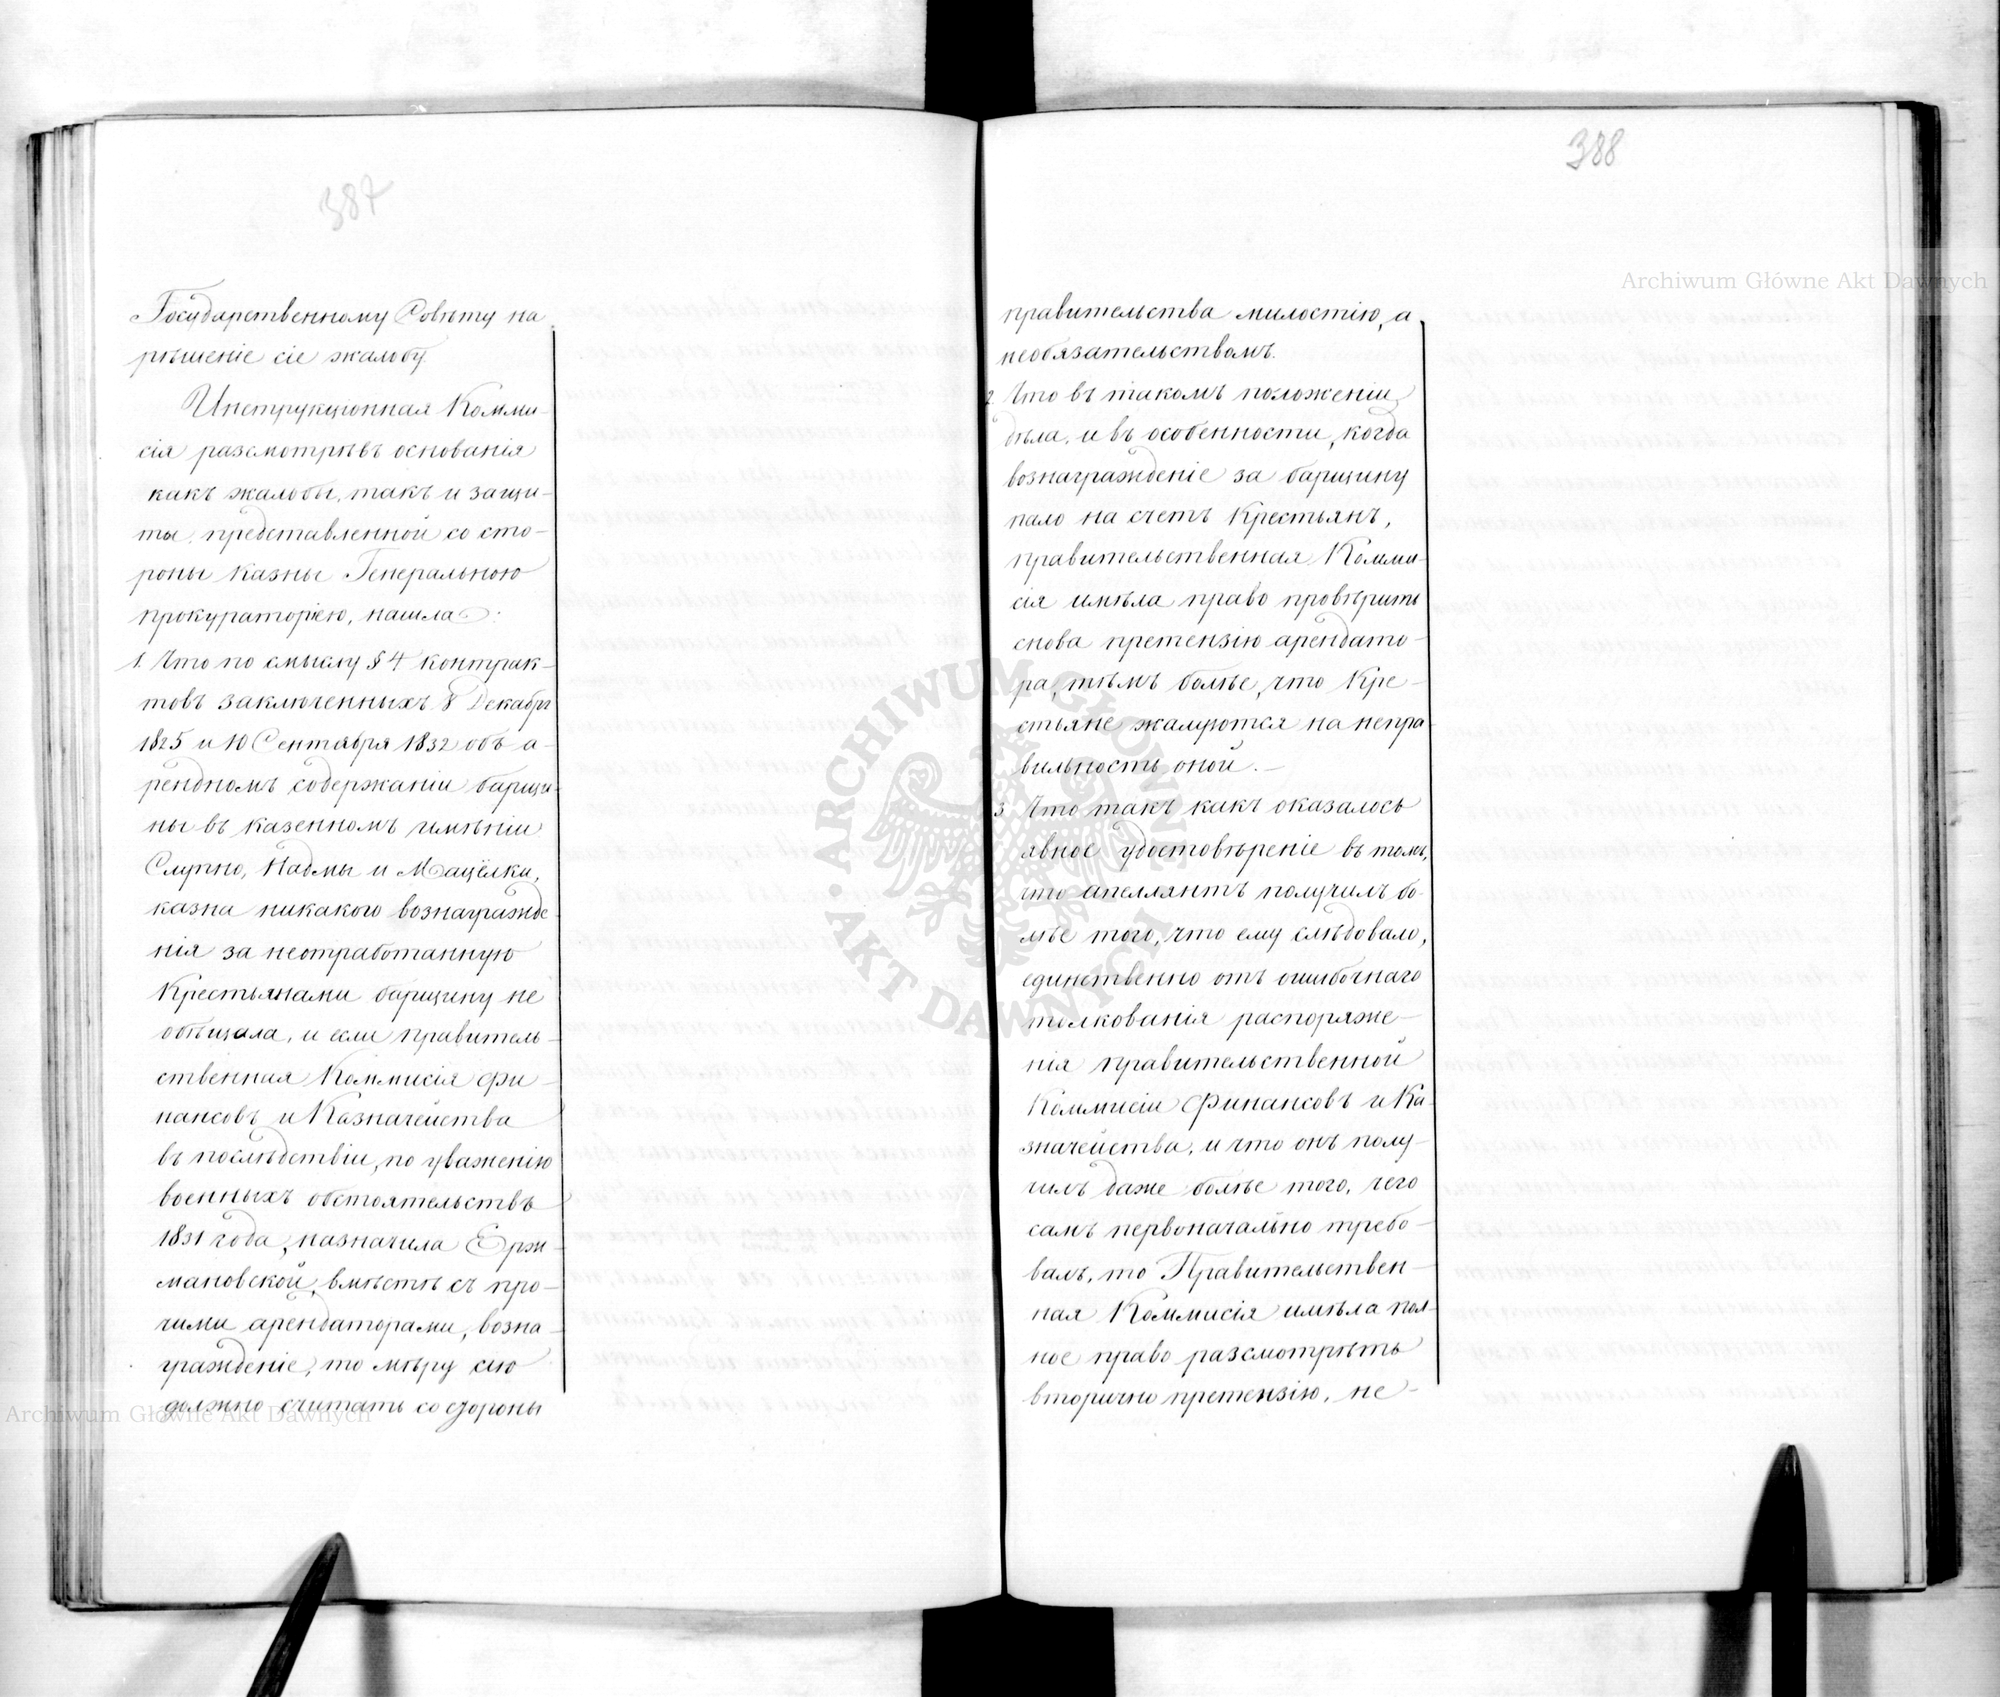 387
Государственному Совѣту на
рѣшеніе сіе жалобу.
Инструкціонная Комми-
сія разсмотрѣвъ основанія
какъ жалобы, такъ и защи-
ты представленной со сто-
роны казны Генеральною
прокураторіею, нашла:
1. Что по смыслу § 4 контрак-
товъ заключенныхъ 8 Декабря
1825 и 10 Сентября 1832 объ а-
рендномъ содержаніи барщи-
ны въ казенномъ имѣніи
Слупно, Надмы и Мацёлки,
казна никакого вознагражде-
нія за неотработанную
Крестьянами барщину не
обѣщала, и если правитель-
ственная Коммисія Фи-
нансовъ и Казначейства
въ послѣдствіи, по уваженію
военныхъ обстоятельствъ
1831 года, назначила Ерж-
мановской, вмѣстѣ съ про-
чими арендаторами, возна-
гражденіе, то мѣру сію
должно считать со стороны
388
правительства милостію, а
необязательствомъ.
2. Что въ такомъ положеніи
дѣла, и въ особенности, когда
вознагражденіе за барщину
пало на счетъ Крестьянъ,
правительственная Комми-
сія имѣла право провѣрить
снова претензію арендато-
ра, тѣмъ болѣе, что Кре-
стьяне жалуются на непра-
вильность оной. —
3. Что такъ какъ оказалось
явное удостовѣреніе въ томъ,
что апеллянтъ получилъ бо-
лѣе того, что ему слѣдовало,
единственно отъ ошибочнаго
толкованія распоряже-
нія правительственной
Коммисіи Финансовъ и Ка-
значейства, и что онъ полу-
чилъ даже болѣе того, чего
самъ первоначально требо-
валъ, то Правительствен-
ная Коммисія имѣла пол-
ное право разсмотрѣть
вторично претензію, не-
Archiwum Główne Akt Dawnych
Archiwum Główne Akt Dawnych
ARCHIWUM GŁÓWNE AKT DAWNYCH